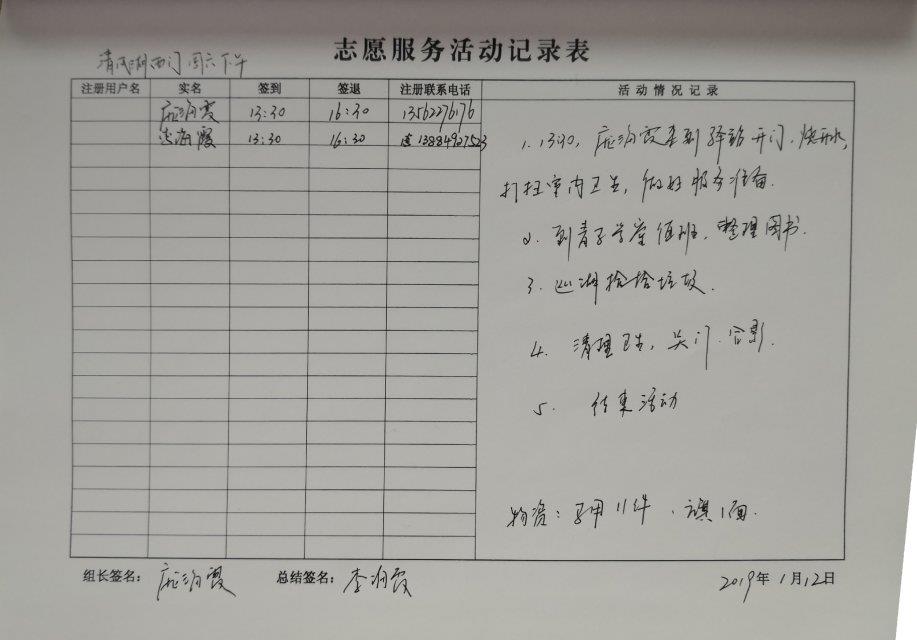 志愿服务活动记录表
西门周六下午
注册用户名 实名 签到 签退 注册联系电话 活动情况记录
庞润霞 13:30 16:30 13562276176
霞 13:30 16:30 13884927523
1. 13:30, 庞润霞来到驿站开门、烧开水,
打扫室内卫生, 做好服务准备.
2. 到 学堂值班、整理图书.
3. 巡湖捡拾垃圾.
4. 清理卫生, 关门、合影.
5. 结束活动
物资: 11件、旗1面.
组长签名: 庞润霞 总结签名: 李润霞 2019年1月12日